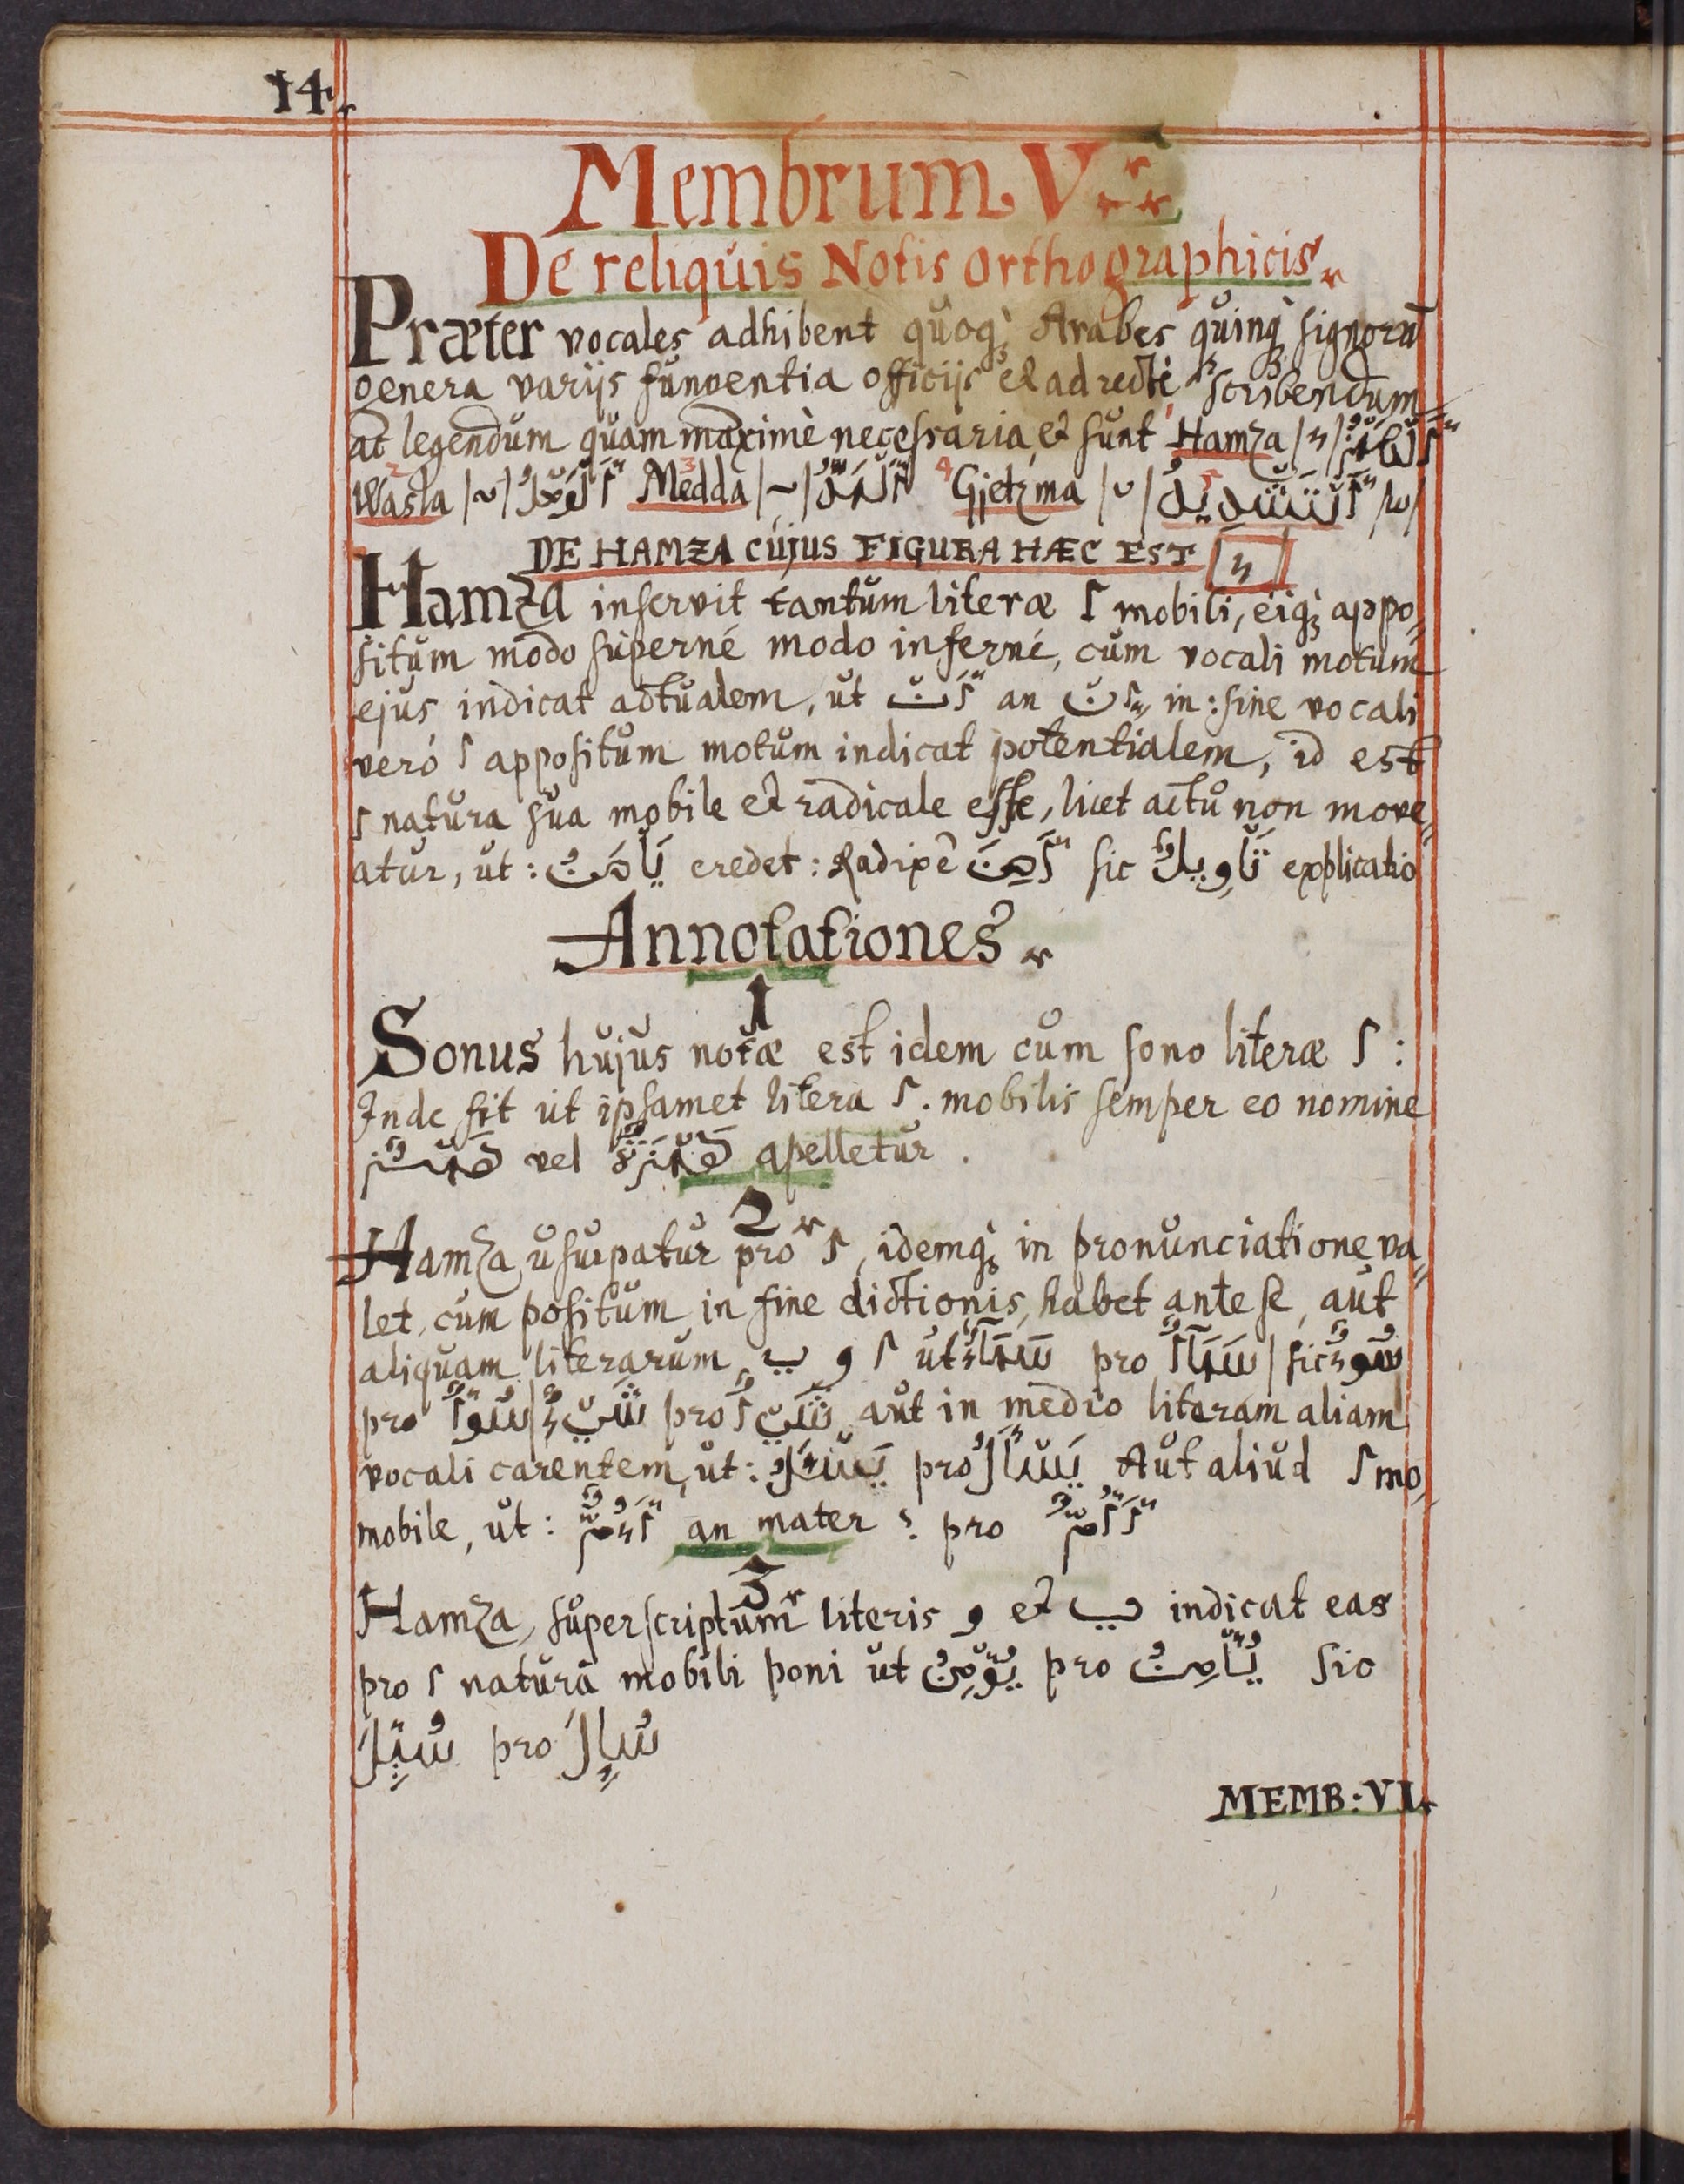 14.
Membrum. V.
De reliquis Notis Orthographicis.
Præter vocales adhibent quoq; Arabes quinq; signorū
genera varijs fungentia officijs et ad rectè scribendum
at legendum quam maximè necessaria, et sunt 1 Hamza |ء| أَلْهَمْزُ
2 Wasla |~| أَلْوَصْلُ 3 Medda |~| أَلْمَدُّ 4 Gjetzma |ᴗ| 5 أَلتَّشْدِيدُ |ω|
DE HAMZA CUJUS FIGURA HÆC EST |ء|
Hamza inservit tantum literæ ا mobili, eiq; appo„
situm modo superné modo inferné, cum vocali motum
ejus indicat actualem, ut أَنْ an إِنْ in: sine vocali
veró ا appositum motum indicat potentialem, id est
ا natura sua mobile et radicale esse, licet actu non move„
atur, ut: يَأْمَنُ credet: Radixē أَمِنَ sic تَأْوِيلٌ explicatio
Annotationes.
1
Sonus hujus notæ est idem cum sono literæ ا :
Inde fit ut ipsamet litera ا. mobilis semper eo nomine
هَمْزٌ vel هَمْزَةٌ apelletur.
2.
Hamza usurpatur pro ا, idemq; in pronunciatione va„
let, cum positum in fine dictionis, habet ante se, aut
aliquam literarum ا و ي ut سَمَآءٌ pro سَمَآأٌ | sic سُوءٌ
pro سُوأٌ | شَيْءٌ pro شَيْأٌ aut in medio literam aliam
vocali carentem, ut: يَسْئَلُ pro يَسْأَلُ Aut aliud ا mo„
mobile, ut: أَءُمٌّ an mater ? pro أَأُمٌّ
3.
Hamza, superscriptum literis و et ي indicat eas
pro ا naturâ mobili poni ut يُؤْمِنُ pro يُأْمِنُ sic
سُئِلَ pro سُاِلَ
MEMB: VI.